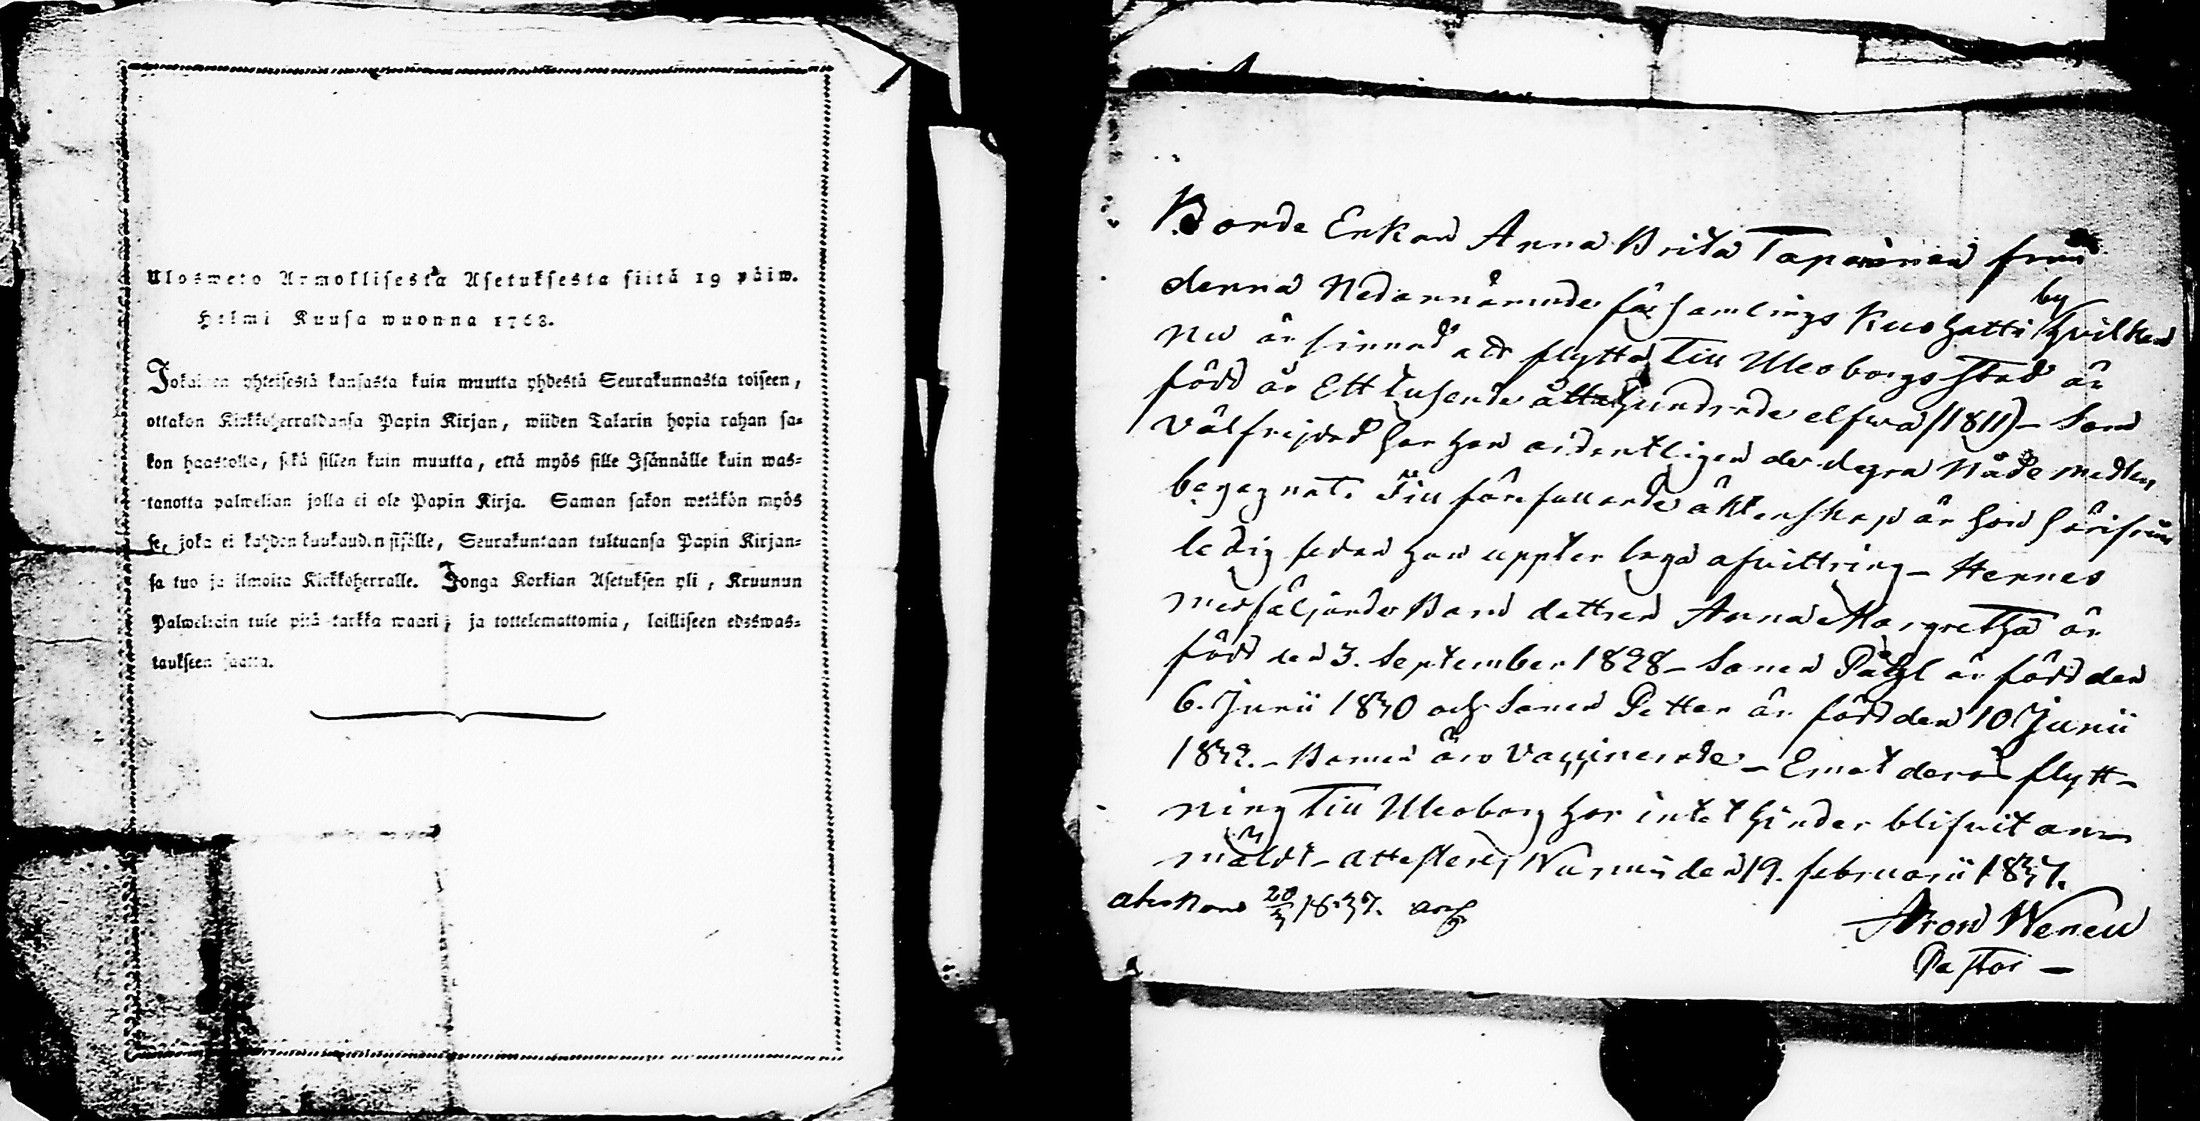 Ulosweto Armollisesta Asetuksesta siitä 19 päiw.
Helmi Kuusa wuonna 1768.
Jokainen yhteisestä kansasta kuin muutta yhdestä Seurakunnasta toiseen,
ottakon Kirkkoherraldansa Papin Kirjan, wiiden Talarin hopia rahan sa-
kon haastolla, sekä sillen kuin muutta, että myös sille Isännälle kuin was-
tanotta palwelian jolla ei ole Papin Kirja. Saman sakon wetäkön myös
se, joka ei kahden kuukauden sisälle, Seurakuntaan tultuansa Papin Kirjan-
sa tuo ja ilmoita Kirkkoherralle. Jonga Korkian Asetuksen yli, Kruunun
Palweliain tule pitä tarkka waari; ja tottelemattomia, lailliseen edeswas-
taukseen saatta.
Bonde Enkan Anna Brita Tapaninen från
denna Nedannämnde församlings Kuohatti by hvilken
nu är sinnad att flytta Till Uleoborgs stad är
född år Ett tusende åttahundrade elfwa (1811) – Som
välfrijdad har hon ordentligen de dyra Nåde medlen
begagnat. Till förefallande äktenskap är hon härifrån
ledig sedan hon uppter laga afvittring – Hennes
medföljande Barn dottren Anna Margretha är
född den 3. September 1828 – Sonen Påhl är född den
6. Junii 1830 och Sonen Petter är född den 10 Junii
1832. – Barnen äro Vaccinerade – Emot deras flytt-
ning Till Uleoborg har intet hinder blifvit an-
mäldt – Attesterej Nurmis den 19. februarii 1837.
Aron Weneu
Pastor –
20/3 1837.